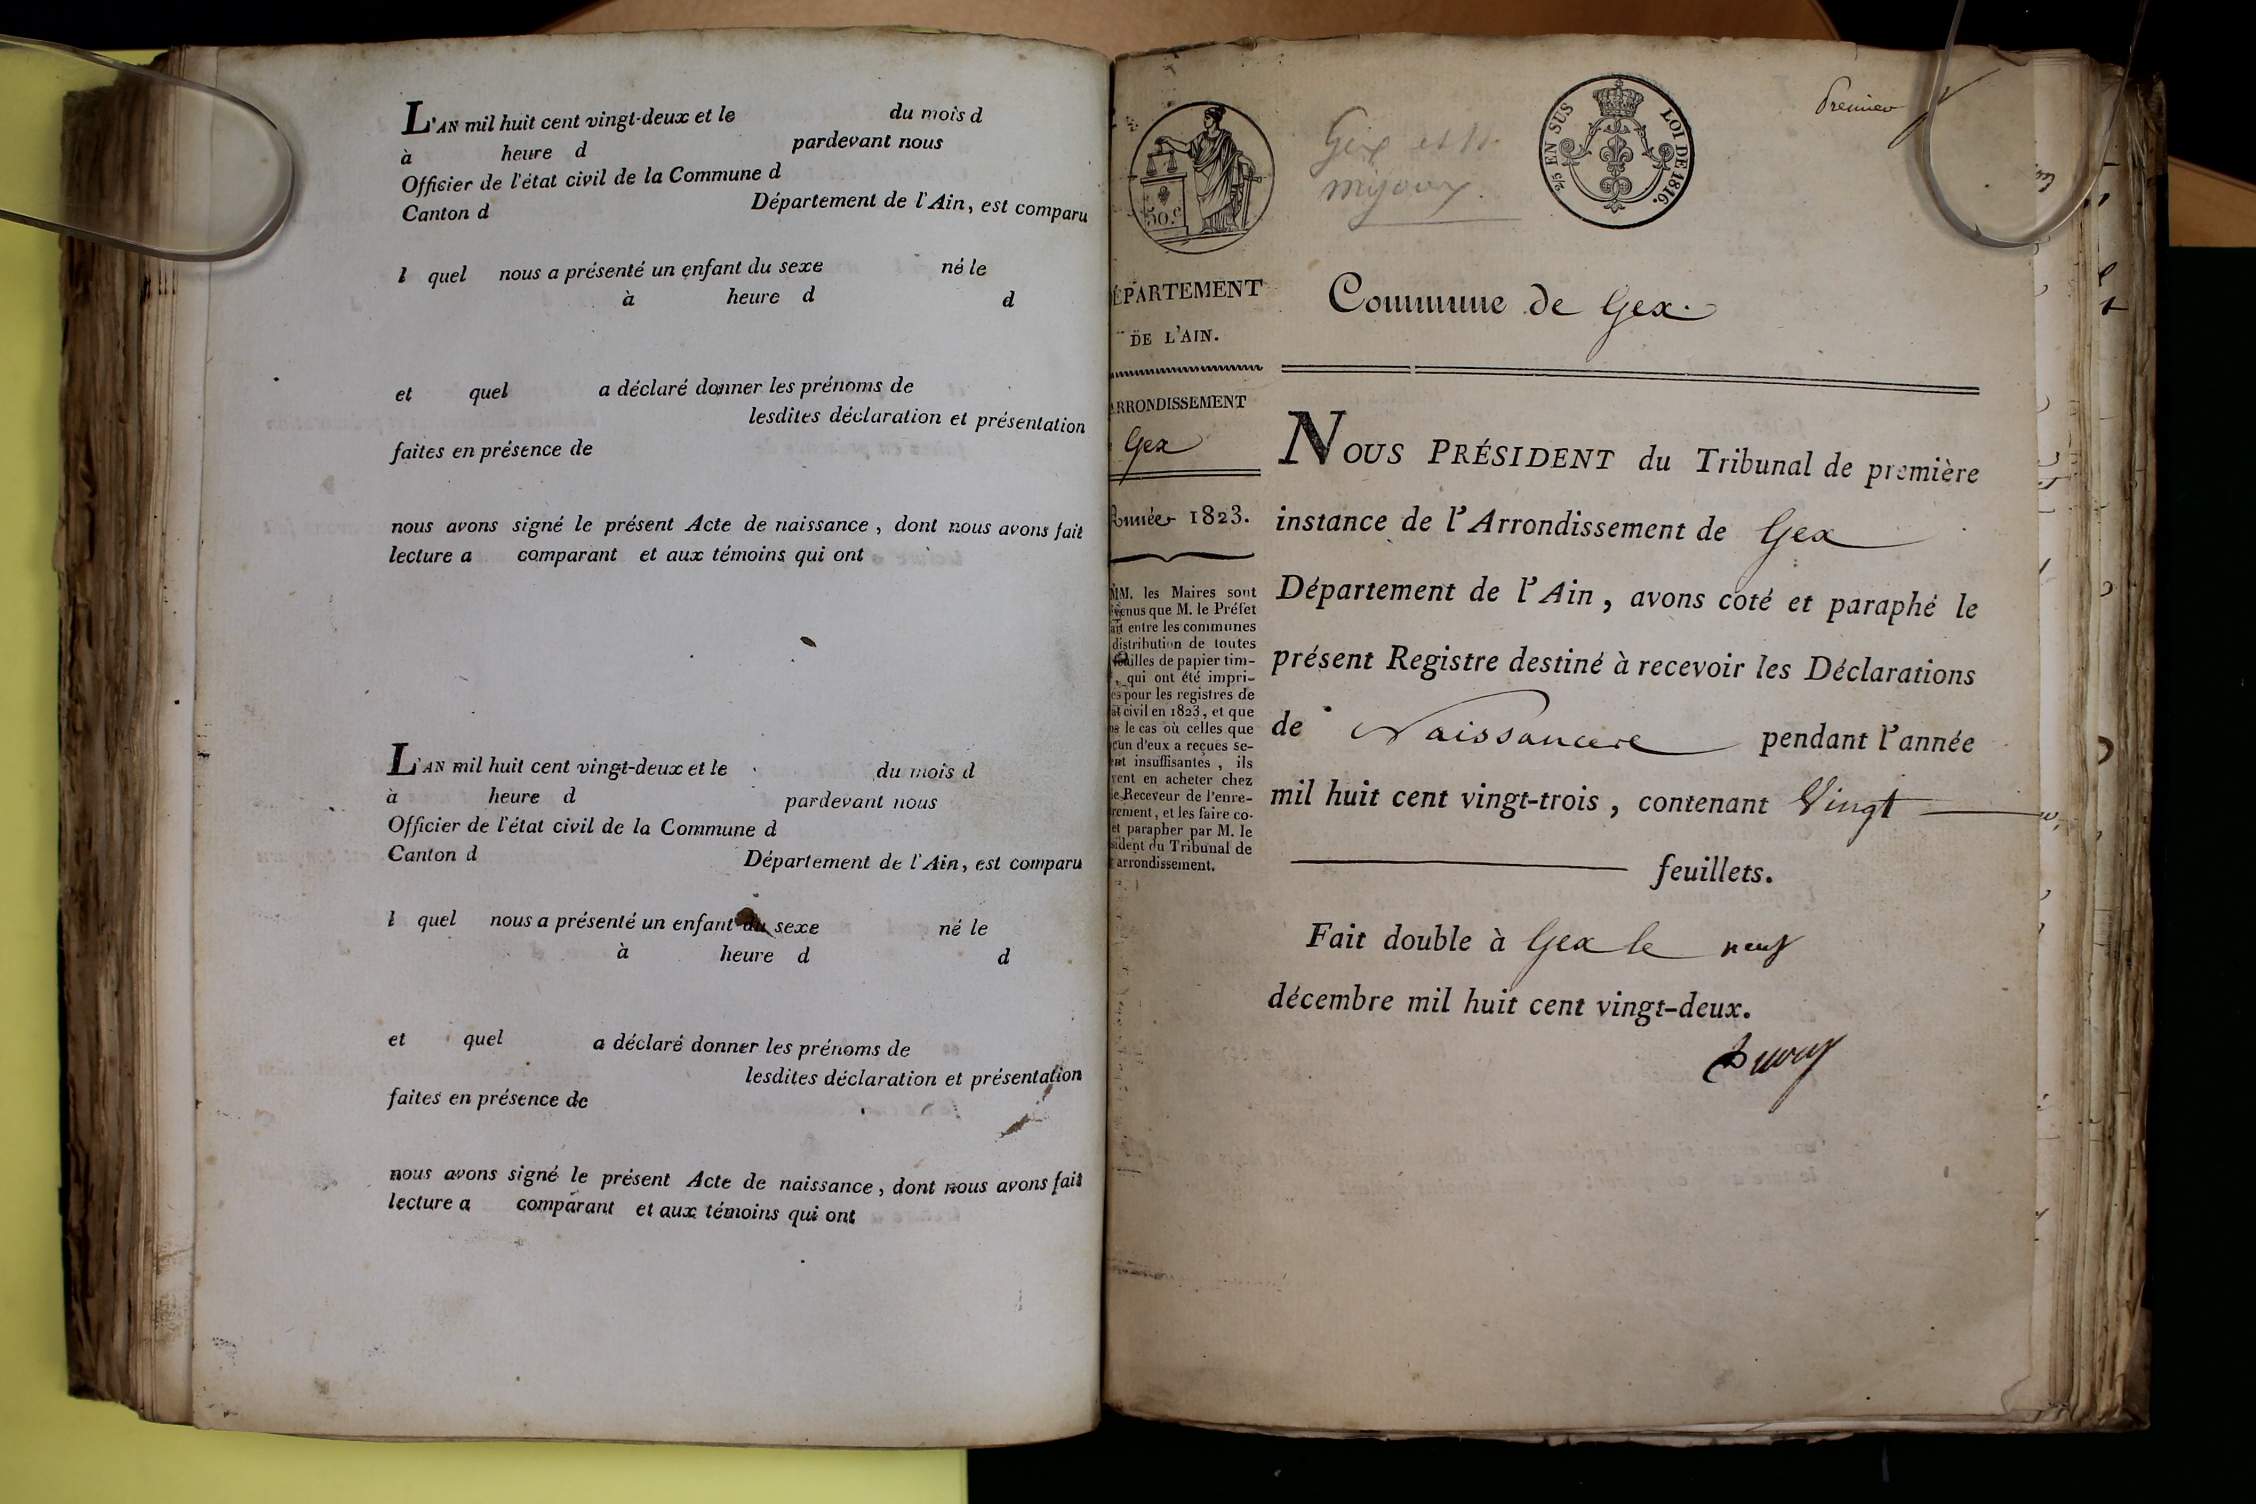 L'AN mil huit cent vingt-deux et le du mois d
à heure d pardevant nous
Officier de l'état civil de la Commune d
Canton d Département de l'Ain, est comparu
l quel nous a présenté un enfant du sexe né le
à heure d d
et quel a déclaré donner les prénoms de
lesdites déclaration et présentation
faites en présence de
nous avons signé le présent Acte de naissance, dont nous avons fait
lecture a comparant et aux témoins qui ont
L'AN mil huit cent vingt-deux et le du mois d
à heure d pardevant nous
Officier de l'état civil de la Commune d
Canton d Département de l'Ain, est comparu
l quel nous a présenté un enfant du sexe né le
à heure d d
et quel a déclaré donner les prénoms de
lesdites déclaration et présentation
faites en présence de
nous avons signé le présent Acte de naissance, dont nous avons fait
lecture a comparant et aux témoins qui ont
50.c
Gex et
mijoux.
2/5 EN SUS LOI DE 1816.
Premier
ÉPARTEMENT
DE L'AIN.
ARRONDISSEMENT
Gex
Année 1823.
MM. les Maires sont
venus que M. le Préfet
ait entre les communes
distribution de toutes
feuilles de papier tim-
, qui ont été impri-
es pour les registres de
at civil en 1823, et que
ns le cas où celles que
cun d'eux a reçues se-
ent insuffisantes, ils
vent en acheter chez
le Receveur de l'enre-
rement, et les faire co-
et parapher par M. le
sident du Tribunal de
arrondissement.
Commune de Gex.
NOUS PRÉSIDENT du Tribunal de première
instance de l'Arrondissement de Gex
Département de l'Ain, avons coté et paraphé le
présent Registre destiné à recevoir les Déclarations
de Naissances pendant l'année
mil huit cent vingt-trois, contenant Vingt
feuillets.
Fait double à Gex le neuf
décembre mil huit cent vingt-deux.